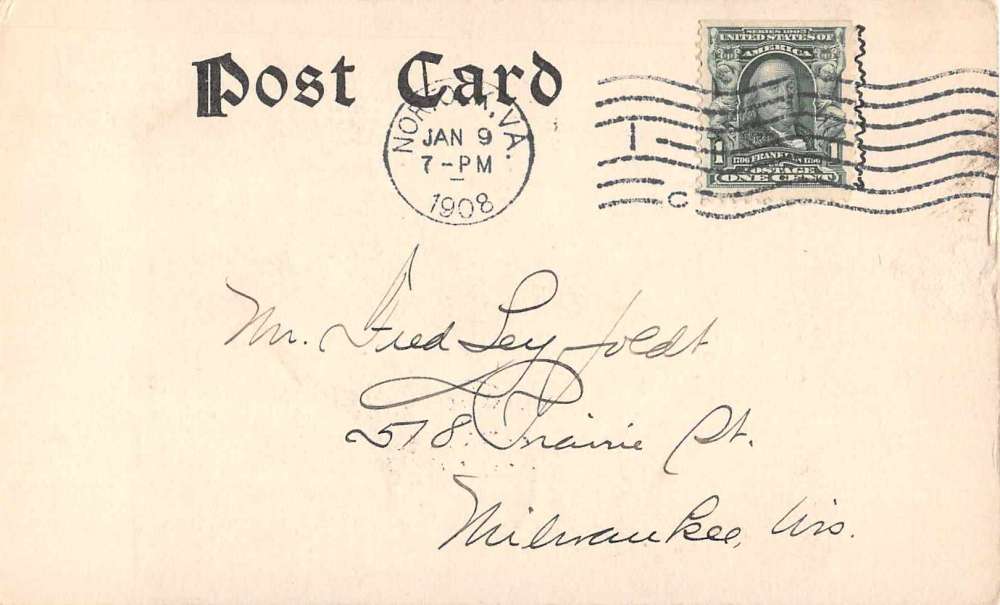 Post Card
NORFOLK, VA.
JAN 9
7-PM
1908
1
C
SERIES 1902
UNITED STATES OF
AMERICA
1 1
1706 FRANKLIN 1790
POSTAGE
ONE CENT
Mr. Fred Leyfoldt
518 Prairie St.
Milwaukee, Wis.